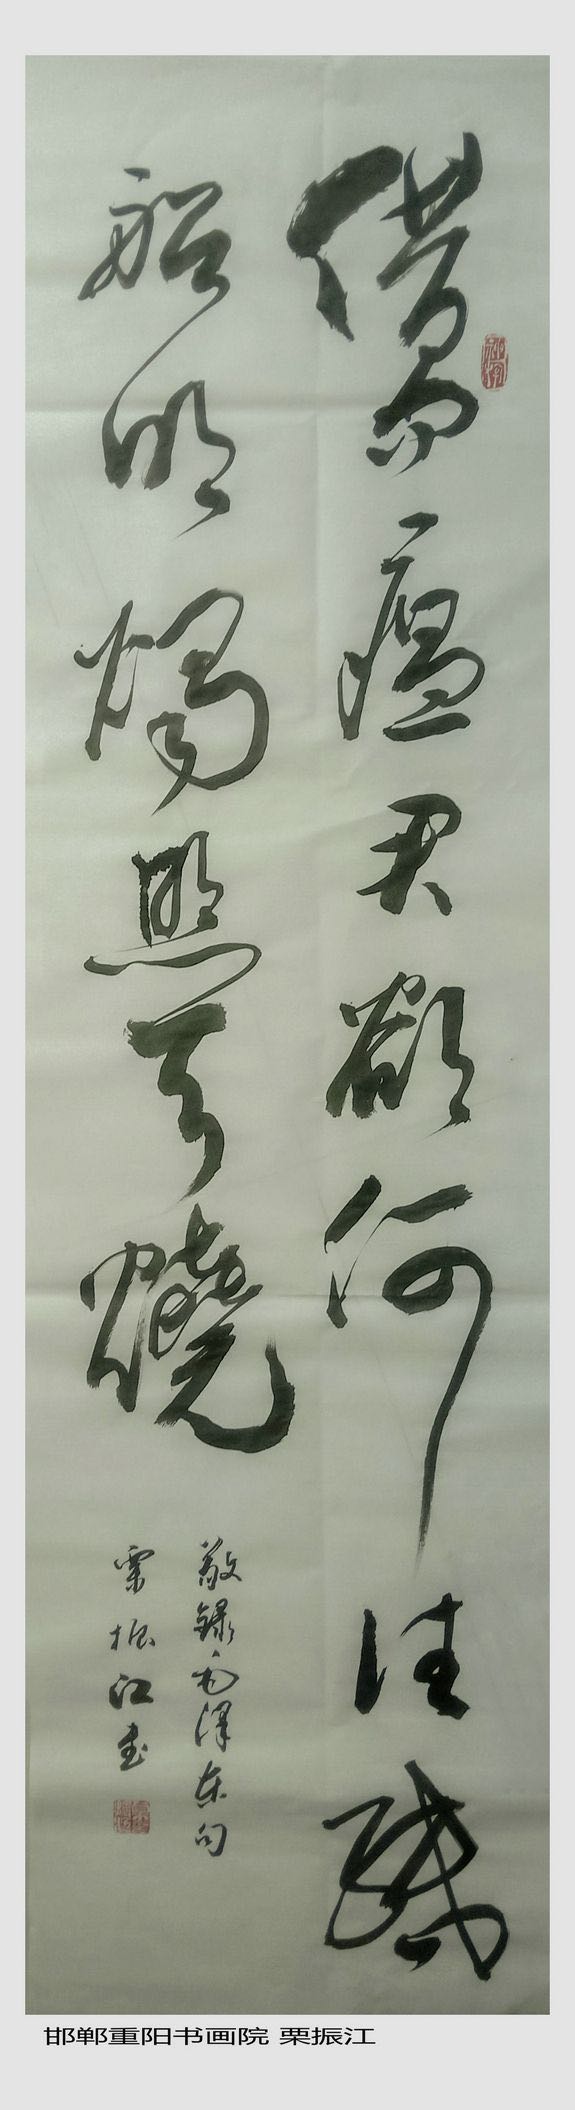 借问瘟君欲何往纸
船明烛照天烧
敬録毛泽东句
栗振江书
邯郸重阳书画院 栗振江